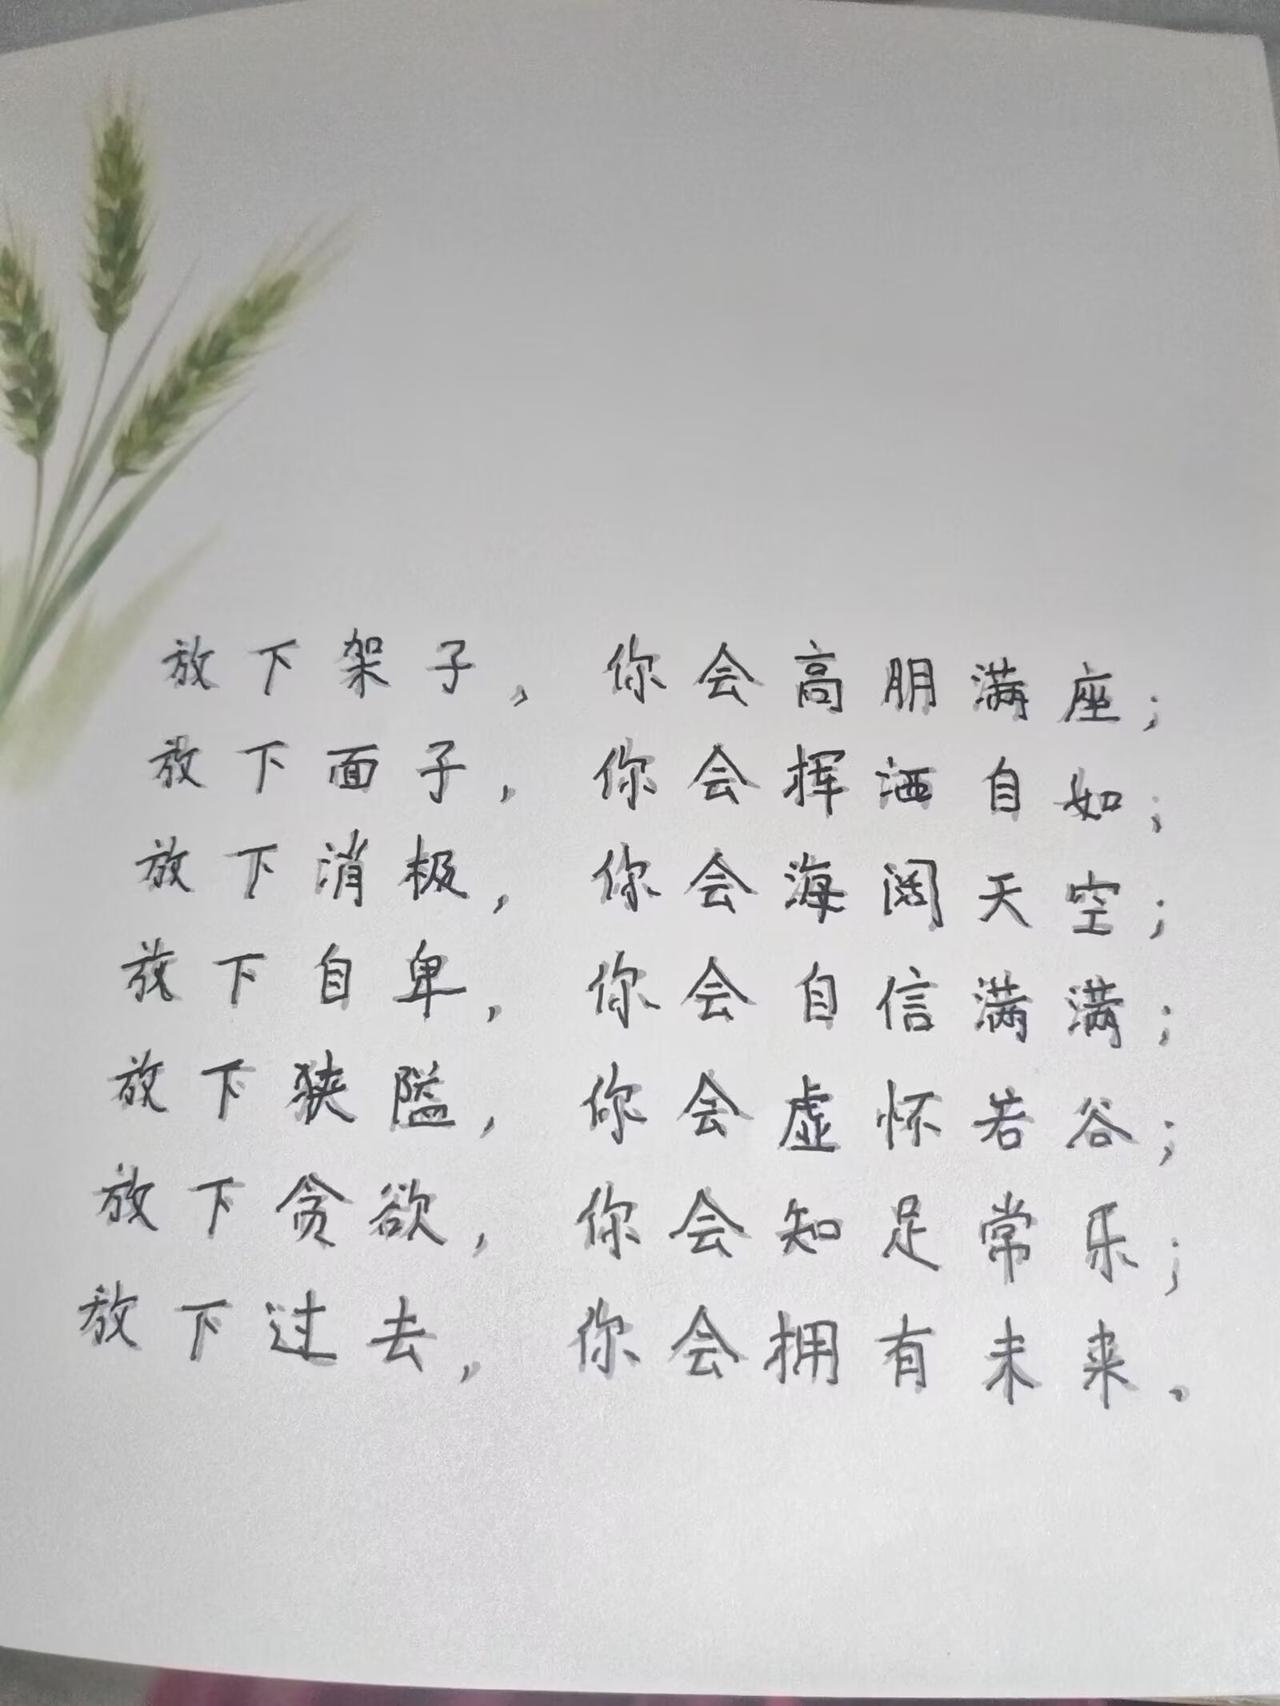 放下架子，你会高朋满座；
放下面子，你会挥洒自如；
放下消极，你会海阔天空；
放下自卑，你会自信满满；
放下狭隘，你会虚怀若谷；
放下贪欲，你会知足常乐；
放下过去，你会拥有未来。